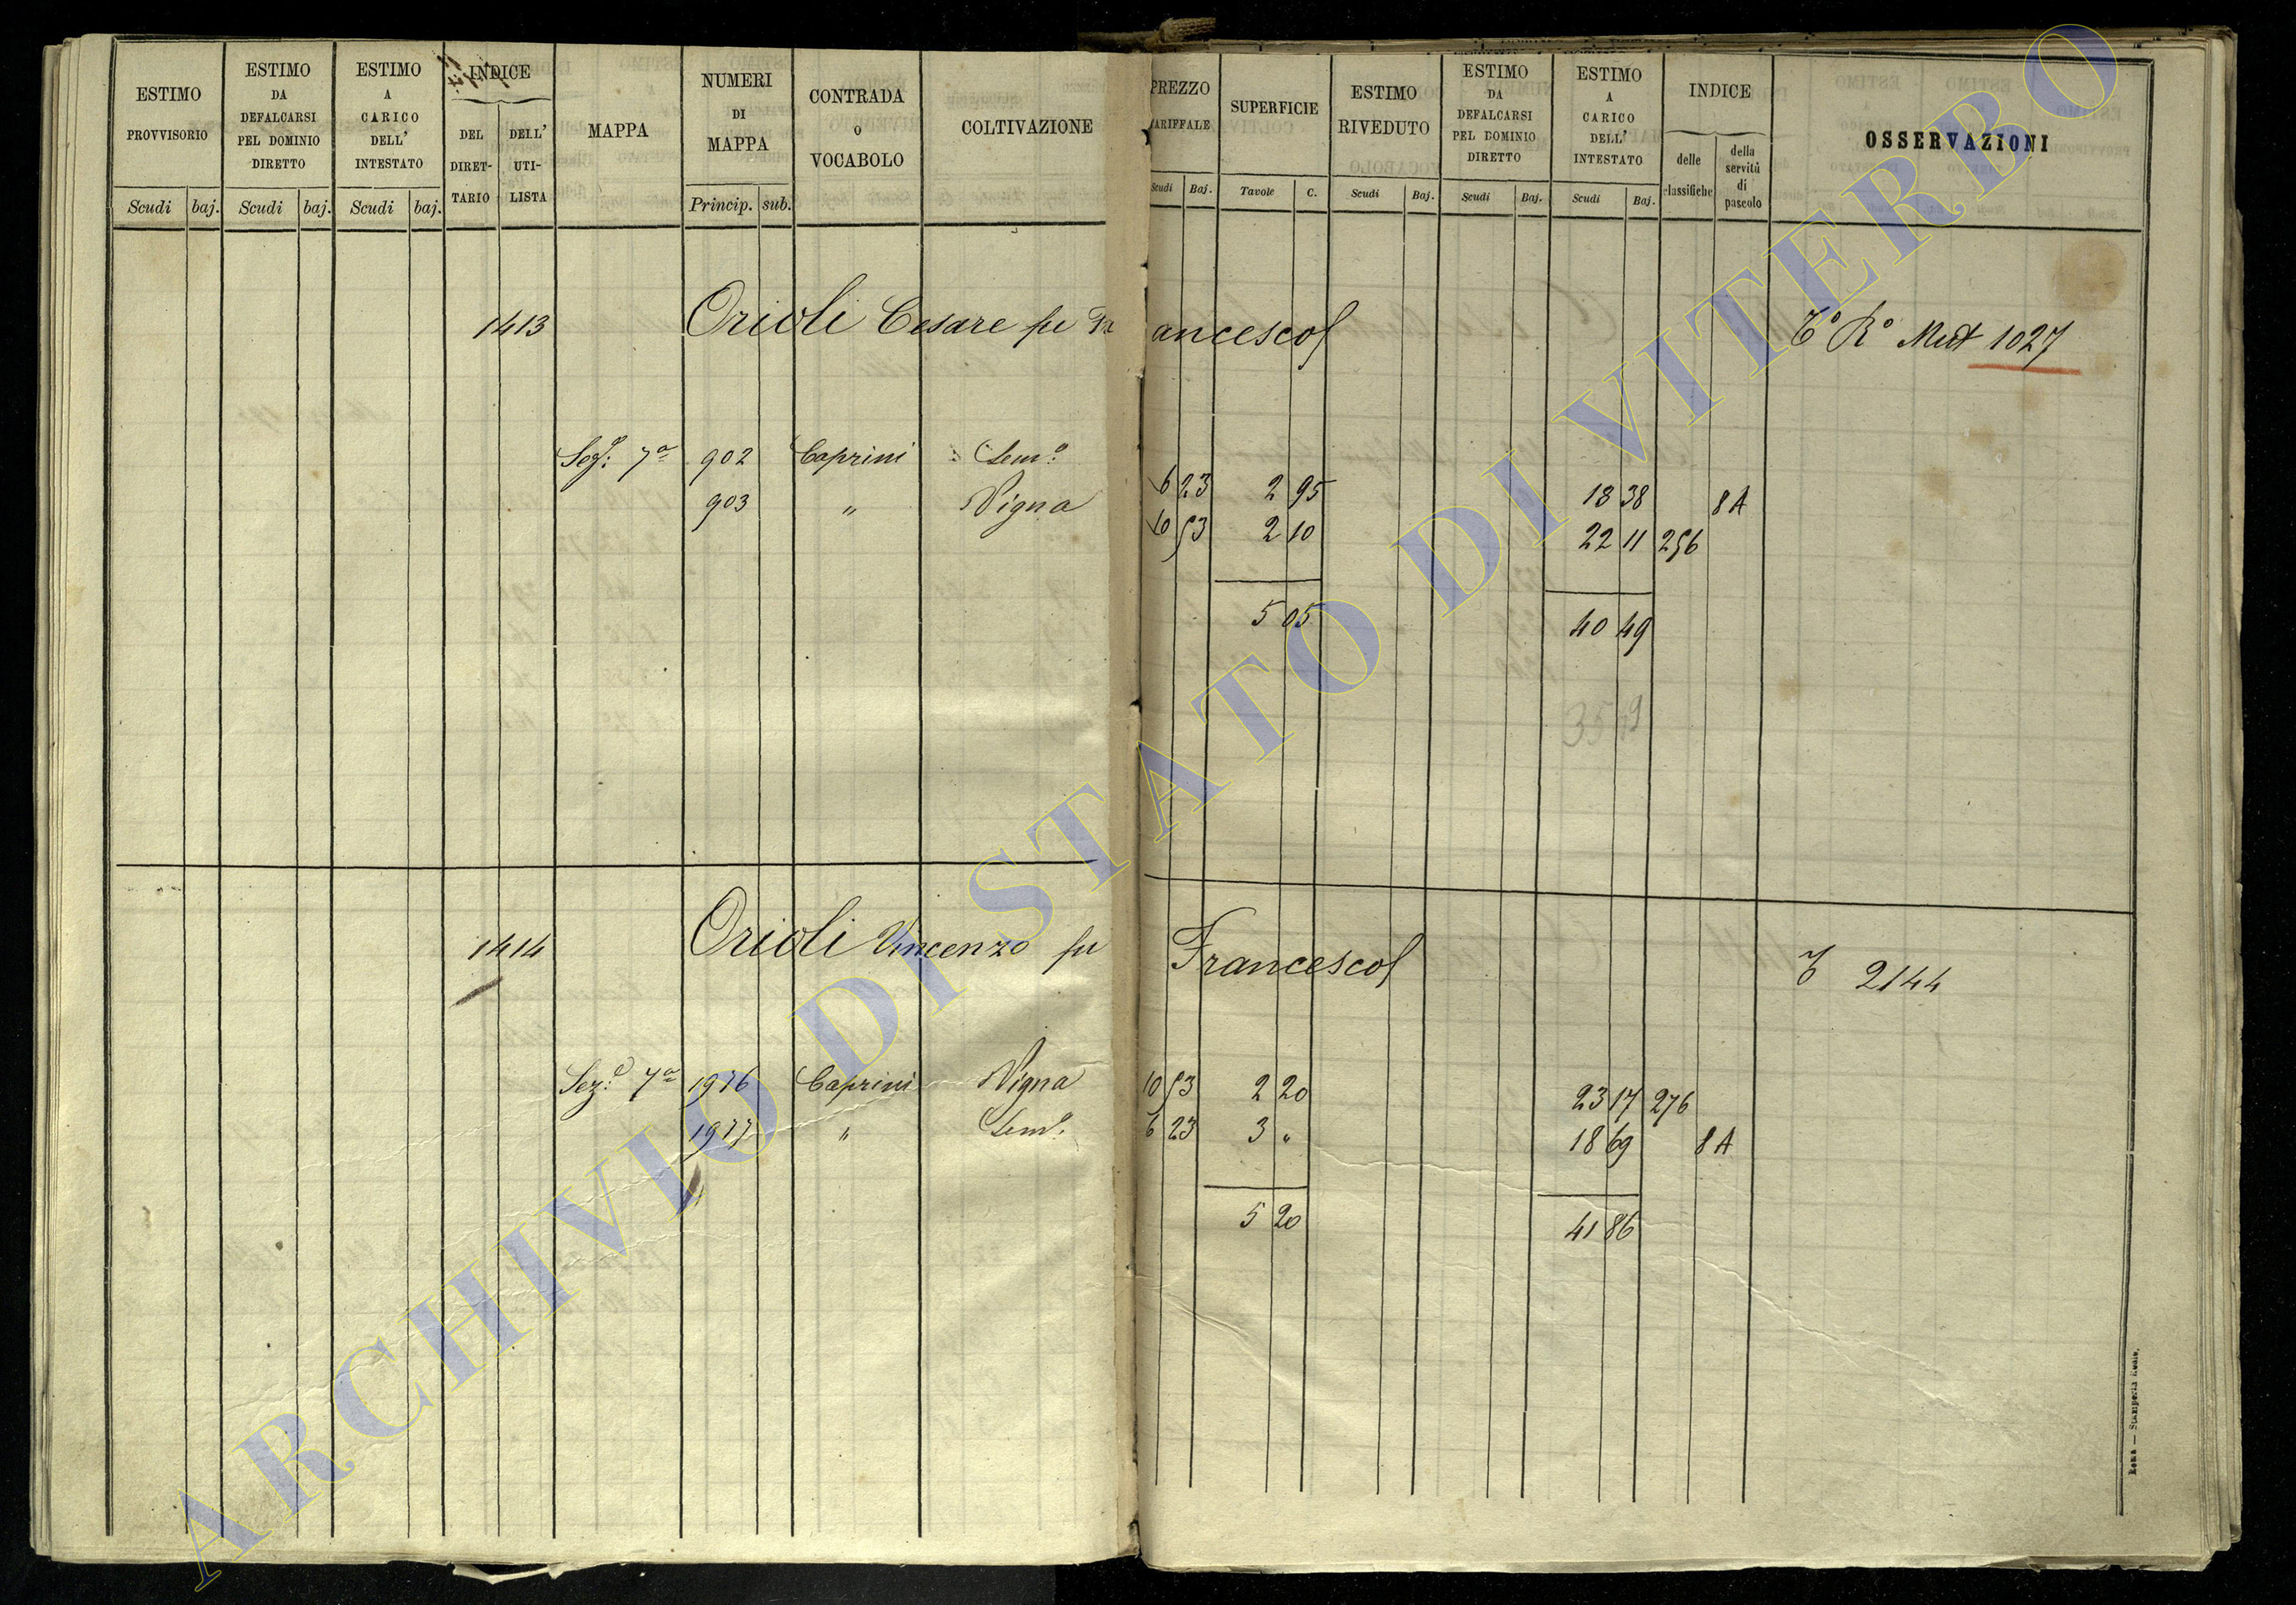 ESTIMO PROVVISORIO
Scudi baj.
ESTIMO DA DEFALCARSI PEL DOMINIO DIRETTO
Scudi baj.
ESTIMO A CARICO DELL' INTESTATO
Scudi baj.
INDICE
DEL DIRET-TARIO
DELL' UTI-LISTA
MAPPA
NUMERI DI MAPPA
Princip. sub.
CONTRADA O VOCABOLO
COLTIVAZIONE
PREZZO TARIFFALE
Scudi Baj.
SUPERFICIE
Tavole C.
ESTIMO RIVEDUTO
Scudi Baj.
ESTIMO DA DEFALCARSI PEL DOMINIO DIRETTO
Scudi Baj.
ESTIMO A CARICO DELL' INTESTATO
Scudi Baj.
INDICE
delle classifiche
della servitù di pascolo
OSSERVAZIONI
1413 Orioli Cesare fu Francesco 1027
7a 902 Caprini Sem.o 6 23 2 95 18 38 8A
903 " Vigna 10 53 2 10 22 11 256
5 05 40 49
1414 Orioli Vincenzo fu Francesco 2144
Sez.e 7a 1976 Caprini Vigna 10 53 2 20 23 17 276
1977 " Sem.o 6 23 3 " 18 69 8A
5 20 41 86
Roma — Stamperia Reale.
ARCHIVIO DI STATO DI VITERBO